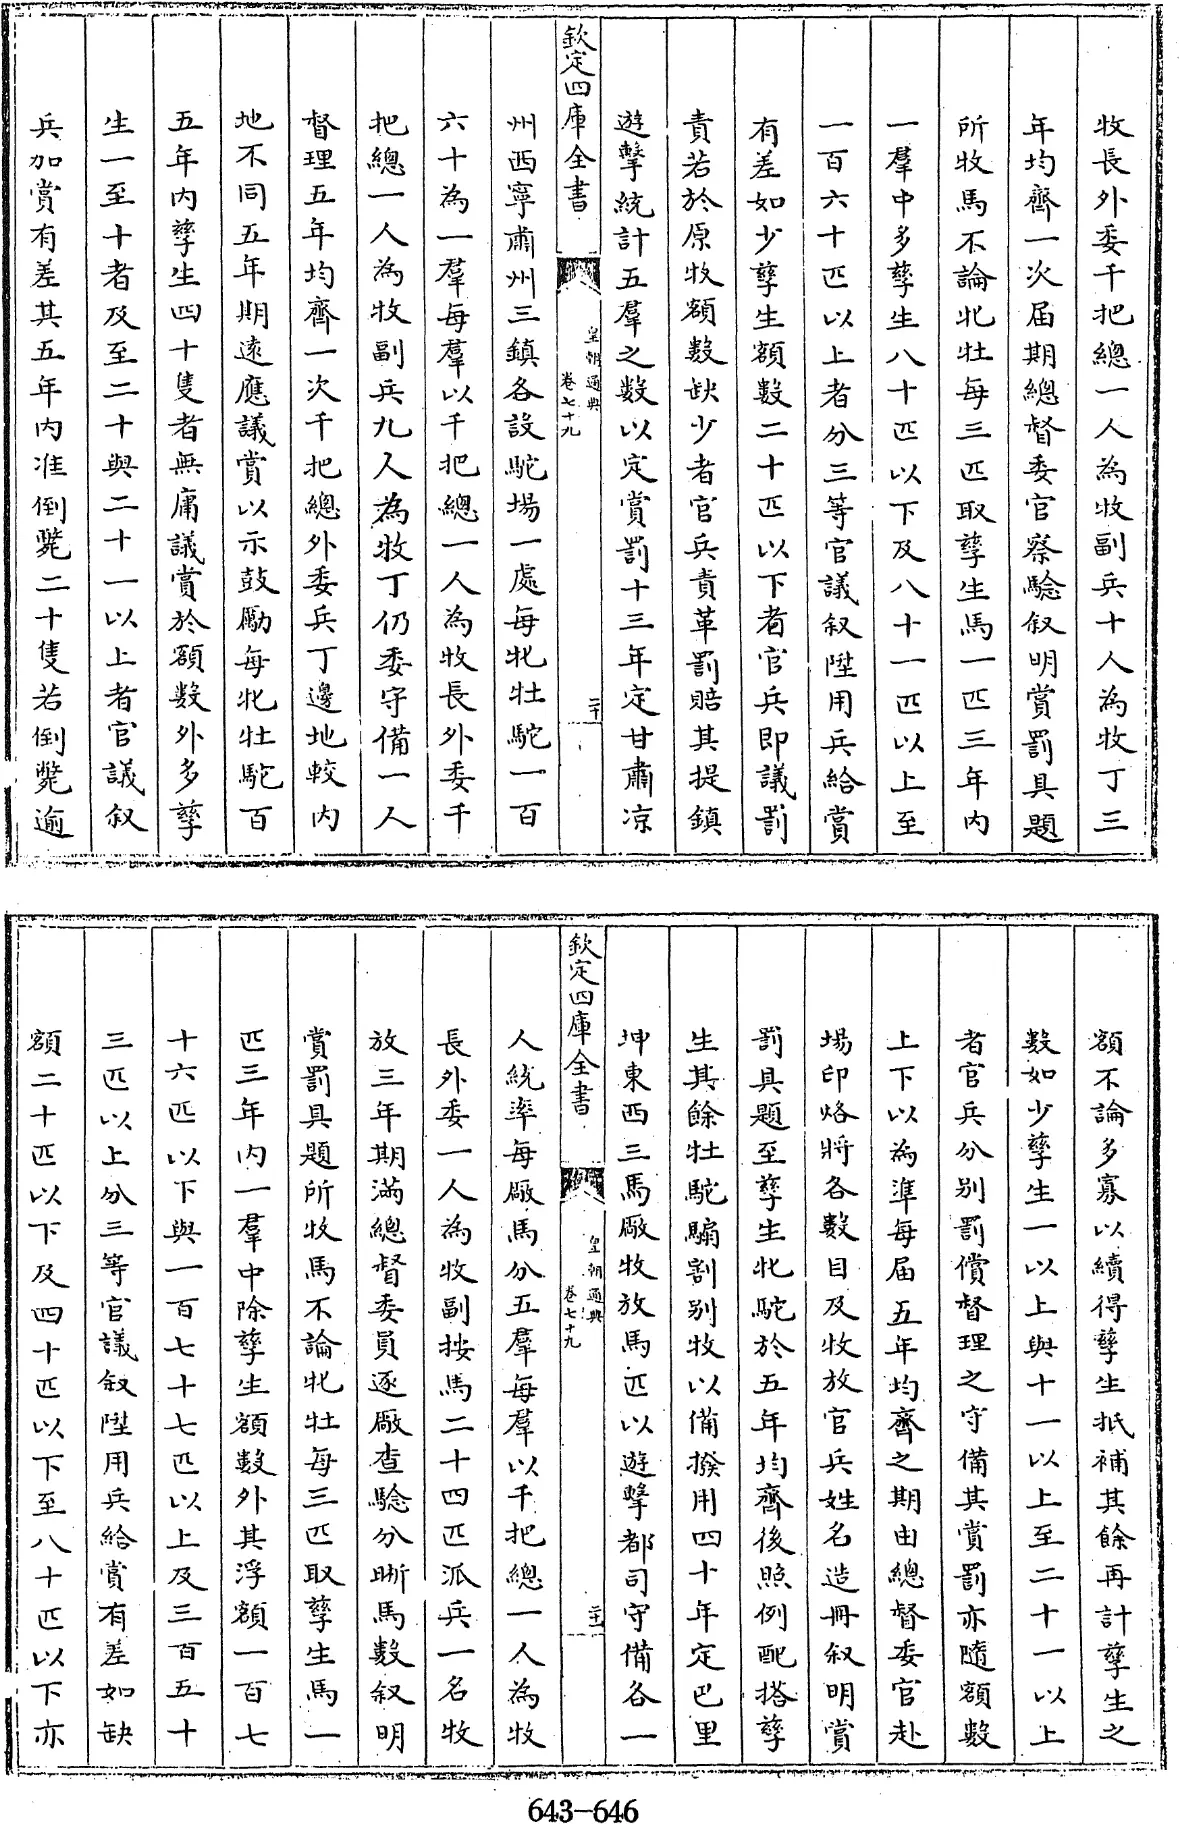 牧長外委千把總一人為牧副兵十人為牧丁三
年均齊一次屆期總督委官察驗叙明賞罰具題
所牧馬不論牝牡每三匹取孳生馬一匹三年内
一羣中多孳生八十匹以下及八十一匹以上至
一百六十匹以上者分三等官議叙陞用兵給賞
有差如少孳生額數二十匹以下者官兵即議罰
責若於原牧額數缺少者官兵責革罰賠其提鎮
遊擊統計五羣之數以定賞罰十三年定甘肅凉
欽定四庫全書
皇朝通典
卷七十九
二十
州西寧肅州三鎮各設駝場一處每牝牡駝一百
六十為一羣每羣以千把總一人為牧長外委千
把總一人為牧副兵九人為牧丁仍委守備一人
督理五年均齊一次千把總外委兵丁邊地較内
地不同五年期遠應議賞以示鼓勵每牝牡駝百
五年内孳生四十隻者無庸議賞於額數外多孳
生一至十者及至二十與二十一以上者官議叙
兵加賞有差其五年内准倒斃二十隻若倒斃逾
額不論多寡以續得孳生抵補其餘再計孳生之
數如少孳生一以上與十一以上至二十一以上
者官兵分别罰償督理之守備其賞罰亦隨額數
上下以為準每届五年均齊之期由總督委官赴
場印烙將各數目及牧放官兵姓名造冊叙明賞
罰具題至孳生牝駝於五年均齊後照例配搭孳
生其餘牡駝騸割别牧以備撥用四十年定巴里
坤東西三馬廠牧放馬匹以遊擊都司守備各一
欽定四庫全書
皇朝通典
卷七十九
二十一
人統率每廠馬分五羣每羣以千把總一人為牧
長外委一人為牧副按馬二十四匹派兵一名牧
放三年期滿總督委員逐廠查驗分晰馬數叙明
賞罰具題所牧馬不論牝牡每三匹取孳生馬一
匹三年内一羣中除孳生額數外其浮額一百七
十六匹以下與一百七十七匹以上及三百五十
三匹以上分三等官議叙陞用兵給賞有差如缺
額二十匹以下及四十匹以下至八十匹以下亦
643-646